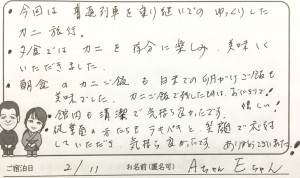 ・今回は 普通列車を乗り継いでの ゆっくりした
カニ旅行。
・夕食では カニを 存分に楽しみ、美味しく
いただきました。
・朝食の カニご飯も 白米での卵かけご飯も
美味でした。カニご飯で残した時は、おにぎりで!
嬉しい!
・館内も 清潔で 気持ち良かったです。
・従業員の方たちも テキパキと、笑顔で 応対
していただき 気持ち良かったです。ありがとうございました。
ご宿泊日 2/11 お名前(匿名可) Aちゃん Eちゃん